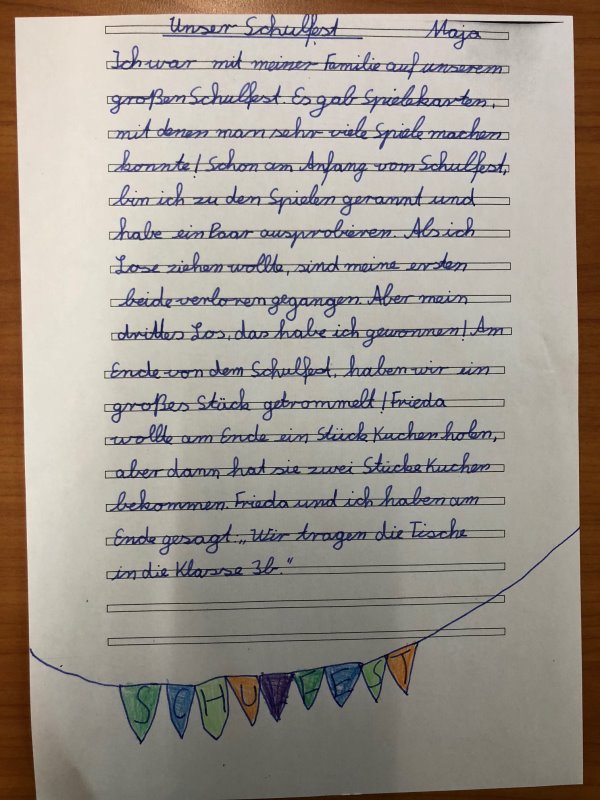 Unser Schulfest Maja
Ich war mit meiner Familie auf unserem
großen Schulfest. Es gab Spielekarten,
mit denen man sehr viele Spiele machen
konnte! Schon am Anfang vom Schulfest,
bin ich zu den Spielen gerannt und
habe ein Paar ausprobieren. Als ich
Lose ziehen wollte, sind meine ersten
beide verloren gegangen. Aber mein
drittes Los, das habe ich gewonnen! Am
Ende von dem Schulfest, haben wir ein
großes Stück getrommelt! Frieda
wollte am Ende ein Stück Kuchen holen,
aber dann hat sie zwei Stücke Kuchen
bekommen. Frieda und ich haben am
Ende gesagt: „Wir tragen die Tische
in die Klasse 3b."
SCHULFEST